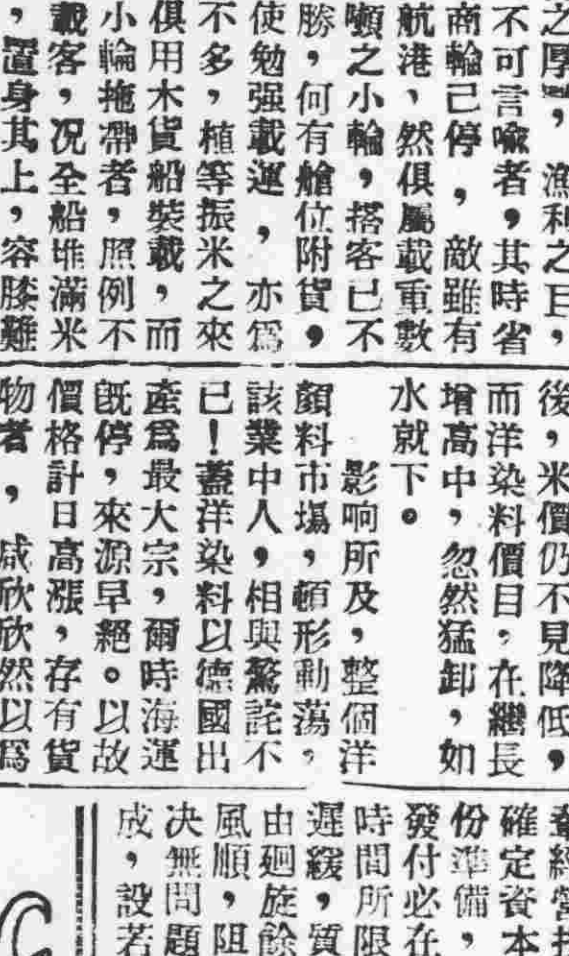 之厚，漁利之巨，
不可言喻者，其時省
商輪已停，敵雖有
航港，然俱屬載重數
噸之小輪，搭客已不
勝，何有艙位附貨，
使勉强載運，亦爲
不多，植等振米之來
俱用木貨船裝載，而
小輪拖帶者，照例不
載客，况全船堆滿米
，置身其上，容膝難
後，米價仍不見降低，
而洋染料價目，在繼長
增高中，忽然猛卸，如
水就下。
影响所及，整個洋
顏料市塲，頓形動蕩，
該業中人，相與驚詫不
已！蓋洋染料以德國出
產爲最大宗，爾時海運
既停，來源早絕。以故
價格計日高漲，存有貨
物者，咸欣欣然以爲
經營
確定資本
份準備，
發付必在
時間所限
遲緩，質
由廻旋餘
風順，阻
决無問題
成，設若